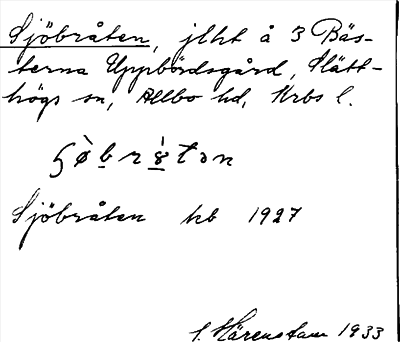 Sjöbråten, jlht å 3 Bäs-
terna Uppbördsgård, Slätt-
högs sn, Allbo hd, Krbs l.
Sjöbråten kb 1927
S. Härenstam 1933